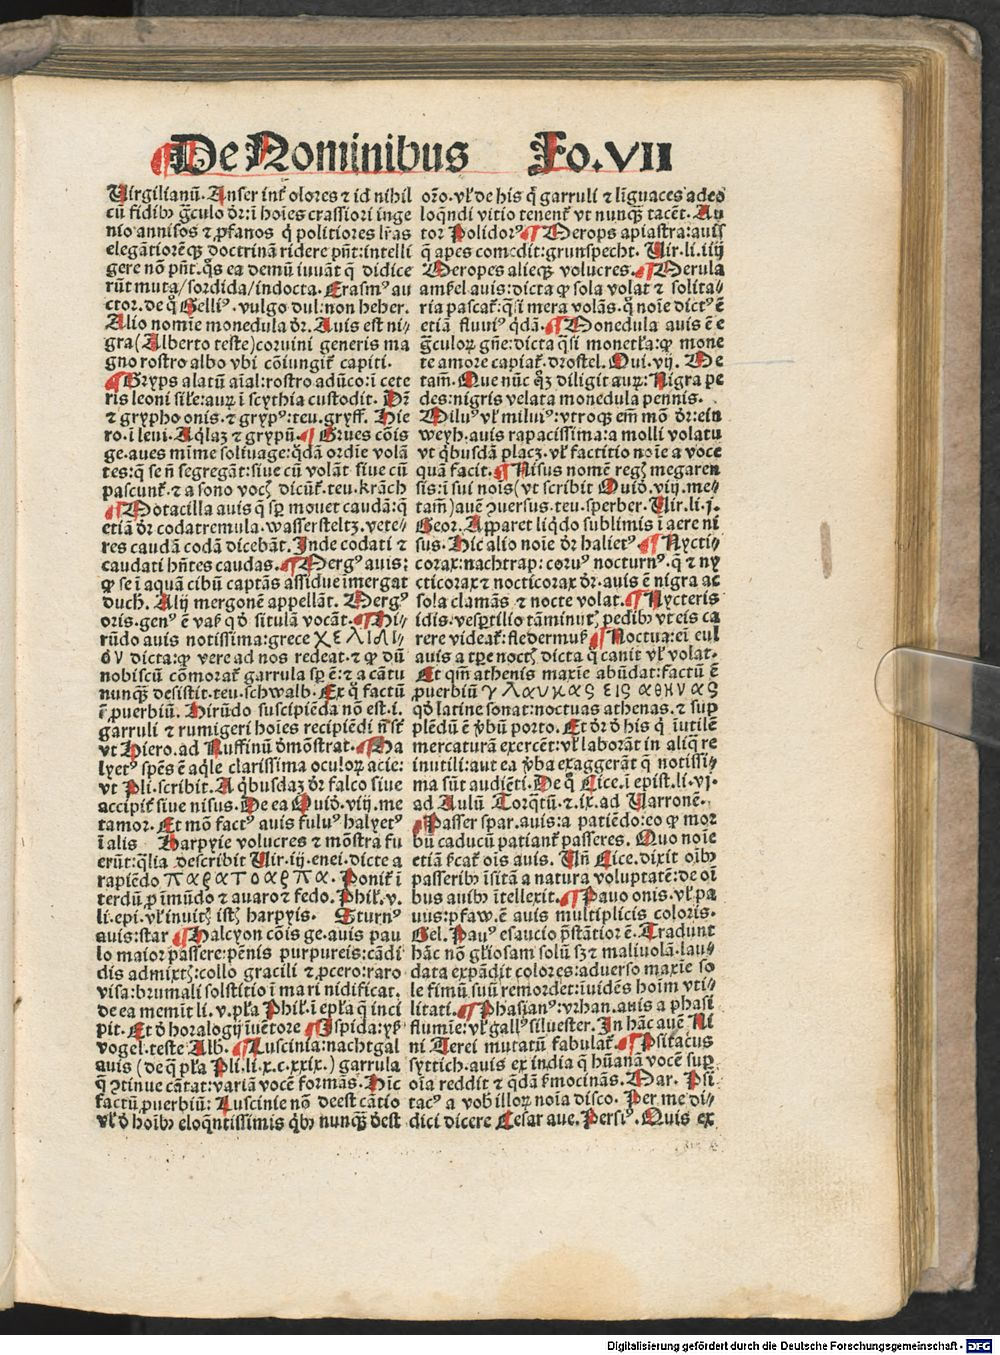 De Nominibus Fo.VII
Virgilianū. Anser int̄ olores ⁊ id nihil
cū fidibꝰ ḡculo dr̄: ī hoīes crassiori inge
nio annisos ⁊ ꝓfanos q̄ politiores lr̄as
elegātiorēqꝫ doctrinā ridere pn̄t: intelli
gere nō pn̄t. q̄s ea demū iuuāt q̄ didice
rūt muta/sordida/indocta. Erasmꝰ au
ctor. de q̊ Gelliꝰ. vulgo dul: non heher.
Alio nomīe monedula dr̄. Auis est ni-
gra (Alberto teste) coruini generis ma
gno rostro albo vbi cōiungit̄ capiti.
¶Gryps alatū aīal: rostro adūco: ī cete
ris leoni sīle: auꝝ ī scythia custodit. Dr̄
⁊ grypho onis. ⁊ grypꝰ: teu. gryff. Hie
ro. ī leui. Aq̄laꝫ ⁊ grypū. ¶Grues cōis
ge. aues mīme soliuage: q̄dā ordīe volā
tes: q̄ se ñ segregāt: siue cū volāt siue cū
pascunt̄. ⁊ a sono vocꝭ dicūt̄. teu. krāch
¶Motacilla auis q̄ sꝑ mouet caudā: q̄
etiā dr̄ codatremula. wassersteltz. vete-
res caudā codā dicebāt. Inde codati ⁊
caudati hn̄tes caudas. ¶Mergꝰ auis:
ꝙ se ī aquā cibū captās assidue īmergat
duch. Alij mergonē appellāt. Mergꝰ
oris. genꝰ ē vas̄ qd̄ situlā vocāt. ¶Hi-
rūdo auis notissima: grece χελιδι-
ον dicta: ꝙ vere ad nos redeat. ⁊ ꝙ dū
nobiscū cōmorat̄ garrula sꝑ ē: ⁊ a cātu
nunqꝫ desistit. teu. schwalb. Ex q̊ factū
ē ꝓuerbiū. Hirūdo suscipiēda nō est. i.
garruli ⁊ rumigeri hoīes recipiēdi ñ sūt
vt Hiero. ad Ruffinū dmōstrat. ¶Ha
lyetꝰ spēs ē aq̄le clarissima oculoꝝ acie:
vt Pli. scribit. A q̄busdaꝫ dr̄ falco siue
accipit̄ siue nisus. De ea Ouid. viij. me
tamor. Et mō factꝰ auis fuluꝰ halyetꝰ
ī alis Harpyie volucres ⁊ mōstra fu
erūt: q̄lia describit Vir. iij. enei. dicte a
rapiēdo παρατοαρπα. Ponit̄ ī
terdū ꝓ īmūdo ⁊ auaro ⁊ fedo. Phil. v.
li. epi. vl̄ inuitꝭ istꝭ harpyis. Sturnꝰ
auis: star ¶Halcyon cōis ge. auis pau
lo maior passere: pēnis purpureis: cādi
dis admixtꝭ: collo gracili ⁊ ꝓcero: raro
visa: brumali solstitio ī mari nidificat.
de ea memīt li. v. pl̄a Phil. ī epl̄a q̄ inci
pit. Et d̄ horalogij īuētore ¶Ispida: yß
vogel. teste Alb. ¶Luscinia: nachtgal
auis (de q̄ pl̄a Pli. li. x. c. xxix.) garrula
q̄ ꝯtinue cātat: variā vocē formās. Hīc
factū ꝓuerbiū: Luscinie nō deest cātio
vl̄ d̄ hoībꝰ eloq̄ntissimis q̄bꝰ nunqꝫ dest
or̄o. vl̄ de his q̄ garruli ⁊ līguaces adeo
loq̄ndi vitio tenent̄ vt nunqꝫ tacēt. Au
tor Polidorꝰ ¶Merops apiastra: auis
q̄ apes comedit: grunspecht. Vir. li. iiij
Meropes alieqꝫ volucres. ¶Merula
amsel auis: dicta ꝙ sola volat ⁊ solita-
ria pascat̄: q̄si mera volās. q̊ noīe dictꝰ ē
etiā fluuiꝰ q̄dā. ¶Monedula auis ē e
ḡculoꝝ gn̄e: dicta q̄si monet̄la: ꝙ mone
te amore capiat̄. drostel. Oui. vij. Me
tam̄. Que nūc q̊ꝫ diligit auꝝ: Nigra pe
des: nigris velata monedula pennis.
Miluꝰ vl̄ miluiꝰ: vtroqꝫ em̄ mō dr̄: ein
weyh. auis rapacissima: a molli volatu
vt q̄busdā placꝫ. vl̄ factitio noīe a voce
quā facit. ¶Nisus nomē regꝭ megaren
sis: ī sui nois̄ (vt scribit Ouid. viij. me-
tam̄) auē ꝯuersus. teu. sperber. Vir. li. j.
Geor. Apparet liq̄do sublimis ī aere ni
sus. Hic alio noīe dr̄ halietꝰ. ¶Nycti-
corax: nachtrap: coruꝰ nocturnꝰ. q̄ ⁊ ny
cticorax ⁊ nocticorax dr̄. auis ē nigra ac
sola clamās ⁊ nocte volat. ¶Nycteris
idis. vespertilio tāminutꝭ pedibꝰ vt eis ca
rere videat̄: fledermuß ¶Noctua: ein eul
auis a tꝑe noctꝭ dicta q̄ canit vl̄ volat.
Et qm̄ athenis maxīe abūdat: factū ē
ꝓuerbiū γλαυκας εις αθηνας
qd̄ latine sonat: noctuas athenas. ⁊ sup
plēdū ē v̄bū porto. Et dr̄ d̄ his q̄ īutilē
mercaturā exercēt: vl̄ laborāt in aliq̄ re
inutili: aut ea v̄ba exaggerāt q̄ notissi-
ma sūt audiēti. De q̊ Cice. ī epist. li. vj.
ad Aulū Torq̄tū. ⁊. ix. ad Varronē.
¶Passer spar. auis: a patiēdo: eo ꝙ mor
bū caducū patiant̄ passeres. Quo noīe
etiā s̄cat̄ oīs auis. Vn̄ Cice. dixit oībꝰ
passeribꝰ īsitā a natura voluptatē: de oī
bus auibꝰ ītellexit. ¶Pauo onis. vl̄ pa
uus: pfaw. ē auis multiplicis coloris.
Gel. Pauꝰ esaucio p̄stātior ē. Tradunt
hāc nō gl̄iosam solū sꝫ ⁊ maliuolā. lau-
data expādit colores: aduerso maxīe so
le fimū suū remordet: īuidēs hoīm vti-
litati. ¶Phasianꝰ: vrhan. auis a phasi
flumīe: vl̄ gallꝰ siluester. In hāc auē Ni
ni Terei mutatū fabulat̄. ¶Psitacus
syttich. auis ex india q̄ hūanā vocē suꝑ
oīa reddit ⁊ q̄dā s̄mocinās. Mar. Psi
tacꝰ a vob̄ illoꝝ noīa disco. Per me di-
dici dicere Cesar aue. Persiꝰ. Quis ex
Digitalisierung gefördert durch die Deutsche Forschungsgemeinschaft - DFG